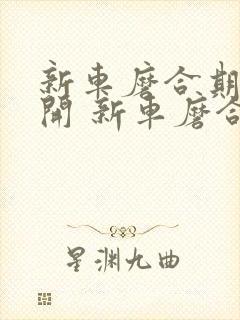 新車磨合期
開 新車磨合
星渊九曲